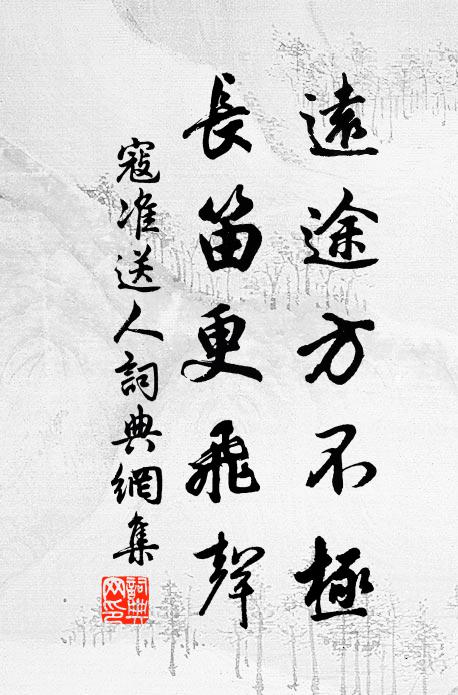 遠途方不極
長笛更飛聲
寇准送人詞典網集
詞典網印